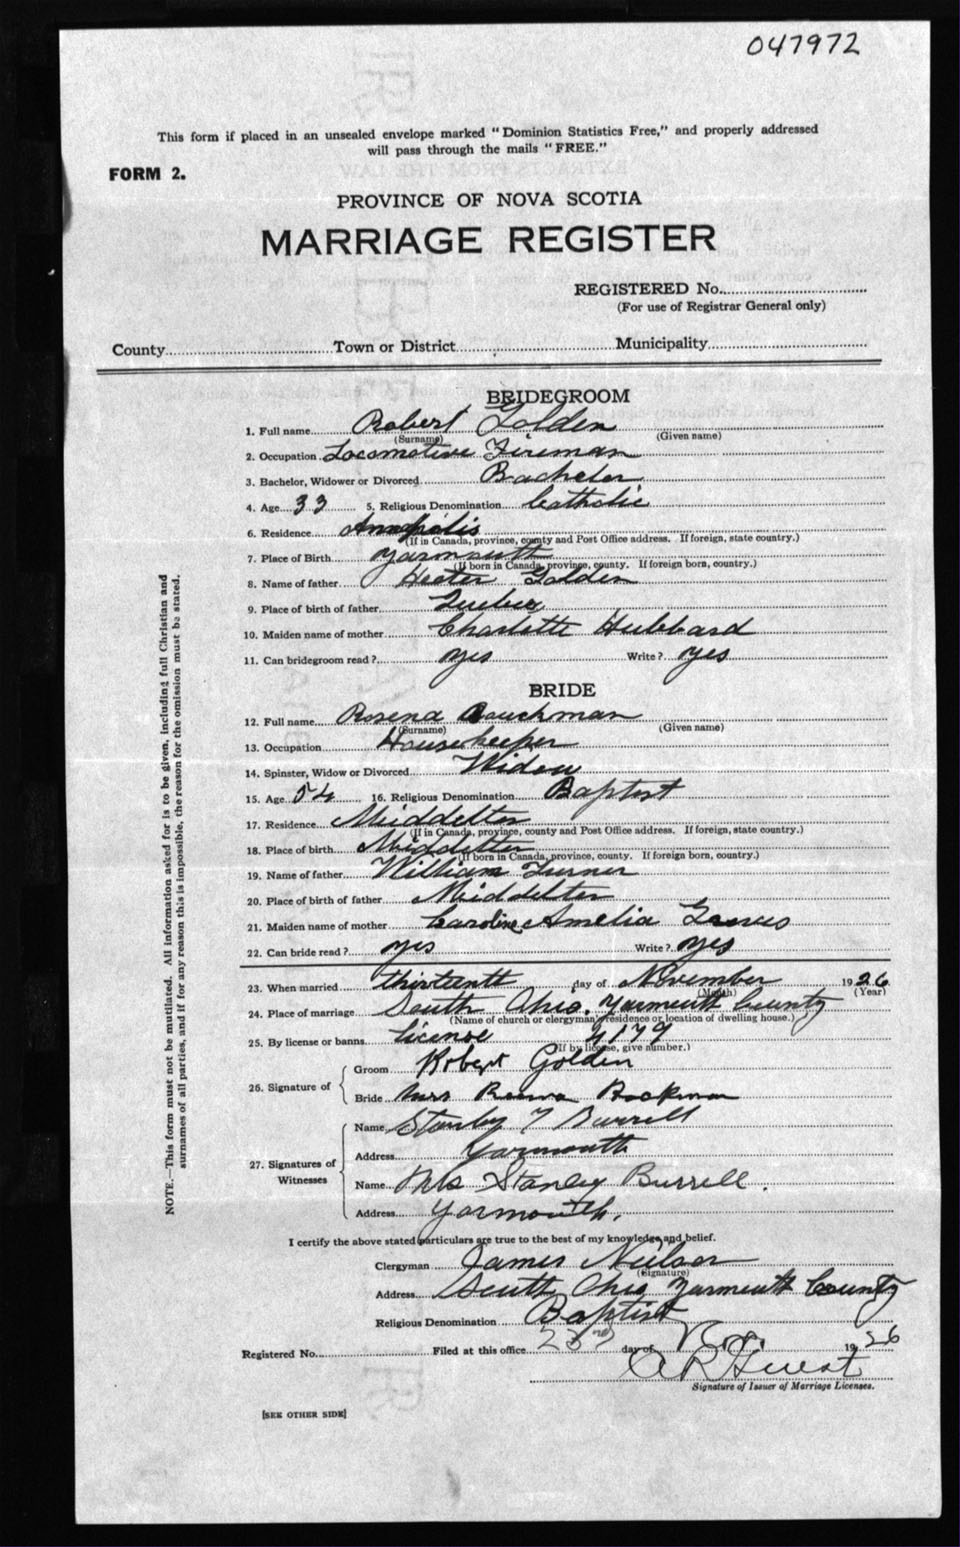 047972
This form if placed in an unsealed envelope marked "Dominion Statistics Free," and properly addressed
will pass through the mails "FREE."
FORM 2.
PROVINCE OF NOVA SCOTIA
MARRIAGE REGISTER
REGISTERED No.
(For use of Registrar General only)
County Town or District Municipality
BRIDEGROOM
1. Full name Robert Golden
(Surname) (Given name)
2. Occupation Locomotive Fireman
3. Bachelor, Widower or Divorced Bachelor
4. Age 33 5. Religious Denomination Catholic
6. Residence Annapolis
(If in Canada, province, county and Post Office address. If foreign, state country.)
7. Place of Birth Yarmouth
(If born in Canada, province, county. If foreign born, country.)
8. Name of father Hector Golden
9. Place of birth of father Quebec
10. Maiden name of mother Charlotte Hubbard
11. Can bridegroom read? yes Write? yes
BRIDE
12. Full name Rosena Bouckman
(Surname) (Given name)
13. Occupation Housekeeper
14. Spinster, Widow or Divorced Widow
15. Age 54 16. Religious Denomination Baptist
17. Residence Middelton
(If in Canada, province, county and Post Office address. If foreign, state country.)
18. Place of birth Middelton
(If born in Canada, province, county. If foreign born, country.)
19. Name of father William Turner
20. Place of birth of father Middelton
21. Maiden name of mother Caroline Amelia
22. Can bride read? yes Write? yes
23. When married thirteenth day of November 1926
(Month) (Year)
24. Place of marriage South Ohio, Yarmouth County
(Name of church or clergyman's residence or location of dwelling house.)
25. By license or banns License 4179
(If by license, give number.)
26. Signature of Groom Robert Golden
Bride Mrs Bockman
27. Signatures of Witnesses Name Stanley T Burrell
Address Yarmouth
Name Mrs Stanley Burrell.
Address Yarmouth.
I certify the above stated particulars are true to the best of my knowledge and belief.
Clergyman James Neilson
(Signature)
Address South Ohio Yarmouth County
Religious Denomination Baptist
Registered No. Filed at this office 23rd day of Nov. 1926
A R Guest
Signature of Issuer of Marriage Licenses.
[SEE OTHER SIDE]
NOTE.—This form must not be mutilated. All information asked for is to be given, including full Christian and
surnames of all parties, and if for any reason this is impossible, the reason for the omission must be stated.